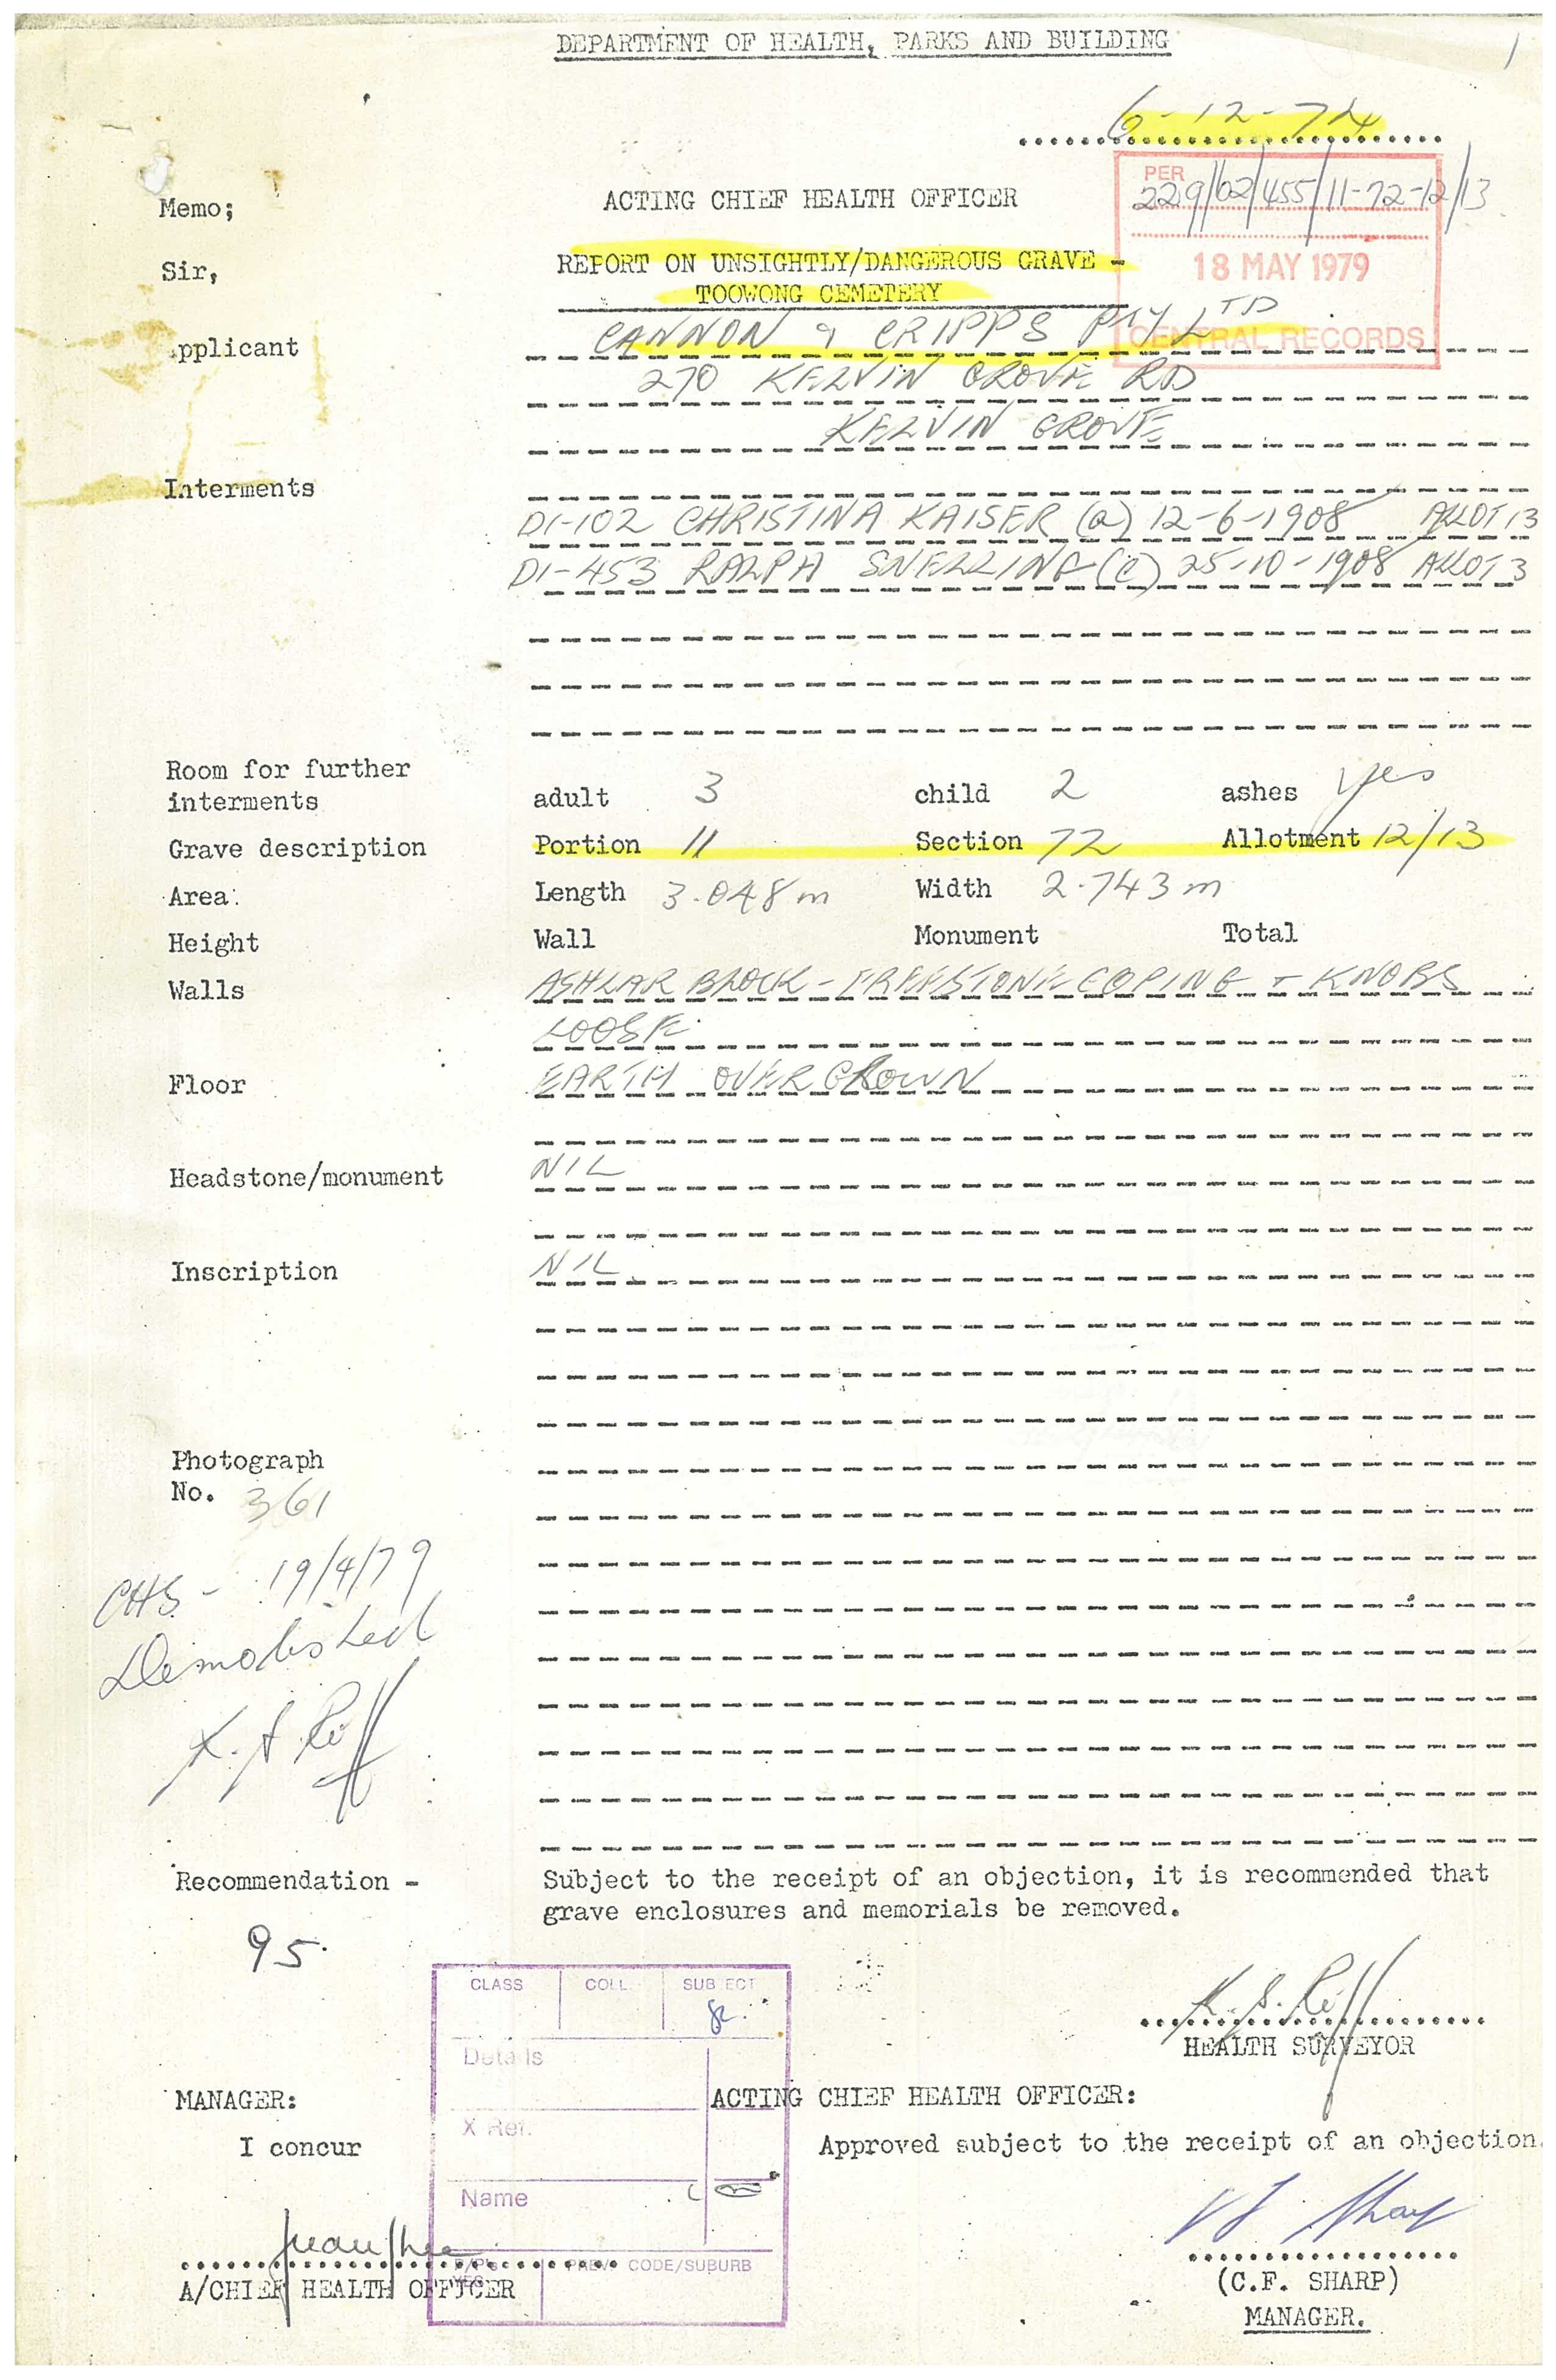 DEPARTMENT OF HEALTH, PARKS AND BUILDING
1
6-12-74
Memo;
ACTING CHIEF HEALTH OFFICER
PER
229/02/455/11-72-12/13
Sir,
REPORT ON UNSIGHTLY/DANGEROUS GRAVE -
TOOWONG CEMETERY
18 MAY 1979
CENTRAL RECORDS
pplicant
CANNON & CRIPPS PTY LTD
270 KELVIN GROVE RD
KELVIN GROVE
Interments
D1-102 CHRISTINA KAISER (a) 12-6-1908 ALLOT 13
D1-453 RALPH SNELLING (c) 25-10-1908 ALLOT 3
Room for further
interments
adult 3 child 2 ashes yes
Grave description Portion 11 Section 72 Allotment 12/13
Area: Length 3.048 m Width 2.743 m
Height Wall Monument Total
Walls ASHLAR BLOCK - FREESTONE COPING + KNOBS
LOOSE
Floor EARTH OVERGROWN
Headstone/monument NIL
Inscription NIL
Photograph
No. 361
CHS - 19/4/79
Demolished
Recommendation - Subject to the receipt of an objection, it is recommended that
grave enclosures and memorials be removed.
95.
CLASS COLL. SUBJECT
Details
X Ref.
Name
PREV. CODE/SUBURB
HEALTH SURVEYOR
MANAGER: ACTING CHIEF HEALTH OFFICER:
I concur Approved subject to the receipt of an objection.
A/CHIEF HEALTH OFFICER
(C.F. SHARP)
MANAGER.